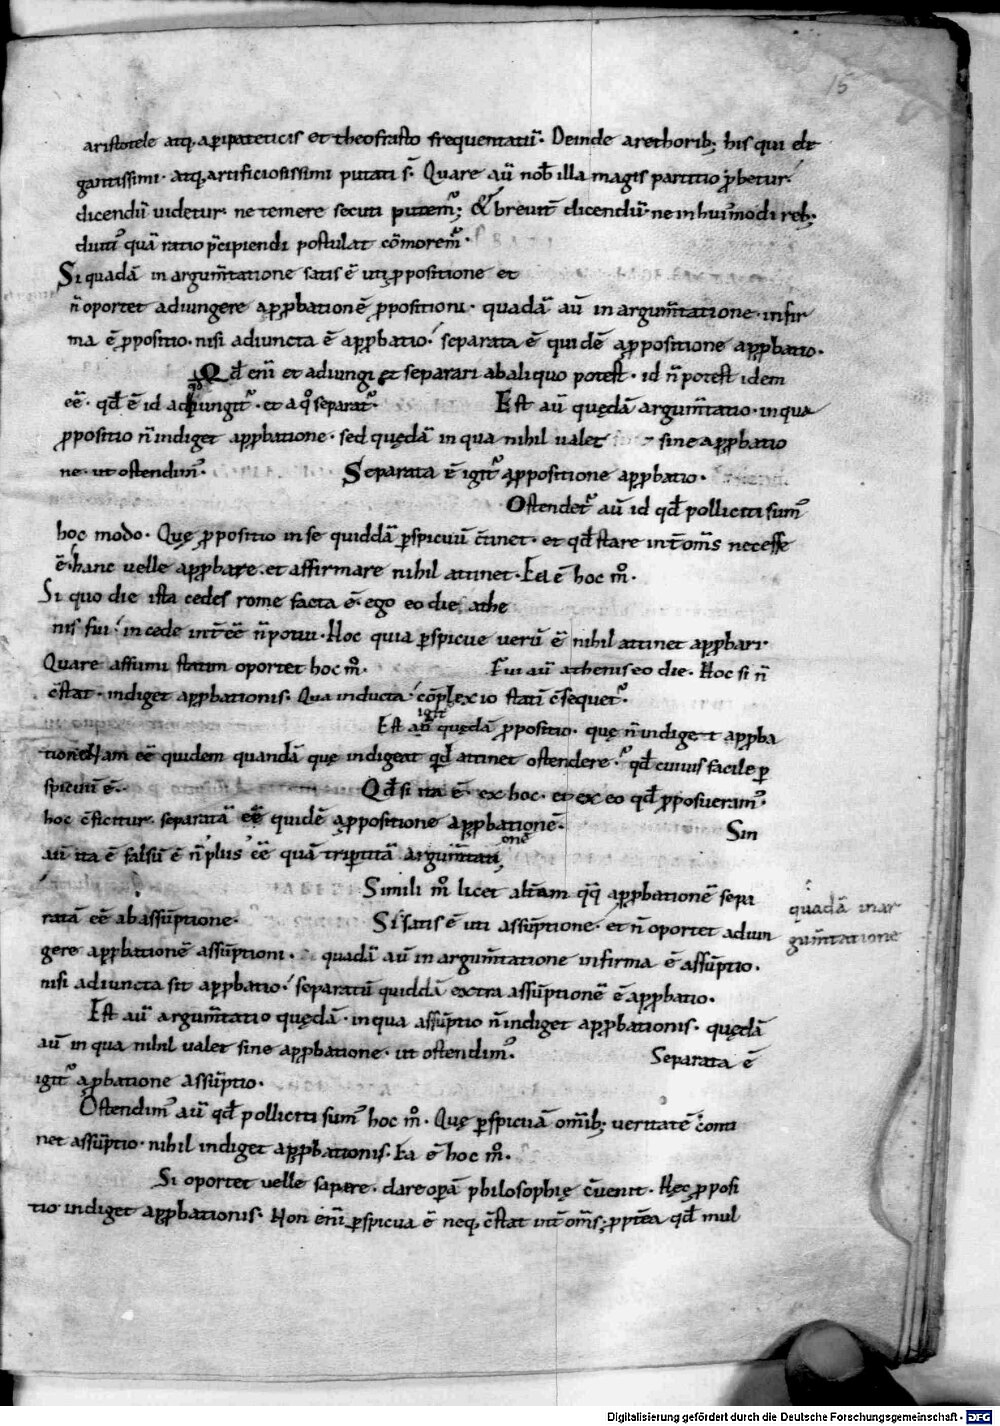 15
aristotele atq; aperipateticis et theofrasto frequentatū. Deinde arethorib; his qui ele
gantissimi. atq; artificiosissimi putati s̄. Quare aū nob̄ illa magis partitio ꝓbetur.
dicendū uidetur. ne temere secuti putemꝰ; & breuit̄ dicendū. ne in huiꝰmodi reb;
diutiꝰ quā ratio p̄cipiendi postulat cōmoremꝰ.
Si quadā in argum̄tatione satis ē uti ꝓpositione et
n̄ oportet adiungere apꝓbationē ꝓpositioni. quadā aū in argum̄tatione infir
ma ē ꝓpositio. nisi adiuncta ē apꝓbatio. separata ē quidē aꝓpositione apꝓbatio.
Qd̄ eni et adiungi et separari ab aliquo potest. id n̄ potest idem
eē. qd̄ ē id adiungit᷑. et a qͦ separat᷑. Est aū quędā argum̄tatio. in qua
ꝓpositio n̄ indiget apꝓbatione. sed quędā in qua nihil ualet sine apꝓbatio
ne. ut ostendimꝰ. Separata ē igit᷑ aꝓpositione apꝓbatio.
Ostendet᷑ aū id qd̄ polliciti sumꝰ
hoc modo. Quę ꝓpositio in se quiddā ꝑspicuū c̄tinet. et qd̄ stare int̄ om̄s necesse
ē. hanc uelle apꝓbare. et affirmare nihil attinet. Ea ē hoc mͦ.
Si quo die ista cedes rome facta ē. ego eo die athe
nis fui. in cede int̄eē n̄ potui. Hoc quia ꝑspicue uerū ē nihil attinet apꝓbari.
Quare assumi statim oportet hoc mͦ. Fui aū athenis eo die. Hoc si n̄
c̄stat. indiget apꝓbationis. Qua inducta cōplexio statī c̄sequet᷑.
igit᷑
Est aū quędā ꝓpositio. quę n̄ indiget apꝓba
tionē. Nam eē quidem quandā quę indigeat qd̄ attinet ostendere. qd̄ cuiuis facile ꝑ
spicuū ē. Qd̄ si ita ē. ex hoc. et ex eo qd̄ ꝓposueramꝰ.
hoc c̄ficitur. separatā eē quidē aꝓpositione apꝓbationē. Sin
aū ita ē falsū ē n̄ plus eē quā tripertitā argum̄tati
onē
Simili mͦ licet alt̄am qͦqͦ apꝓbationē sepa
ratā eē ab assūptione. Si satis ē uti assūptione. et n̄ oportet adiun
quadā in ar
gum̄tatione
gere apꝓbationē assūptioni. quadā aū in argum̄tatione infirma ē assūptio.
nisi adiuncta sit apꝓbatio. separatū quiddā extra assūptionē ē apꝓbatio.
Est aū argum̄tatio quędā. in qua assūptio n̄ indiget apꝓbationis. quędā
aū in qua nihil ualet sine apꝓbatione. ut ostendimꝰ. Separata ē
igit᷑ apꝓbatione assūptio.
Ostendimꝰ aū qd̄ polliciti sumꝰ hoc mͦ. Quę ꝑspicuā om̄ib; ueritatē conti
net assūptio. nihil indiget apꝓbationis. Ea ē hoc mͦ.
Si oportet uelle sapere. dare opā philosophię c̄uenit. Hęc ꝓposi
tio indiget apꝓbationis. Non eni ꝑspicua ē neq; c̄stat int̄ om̄s; ꝓpt̄ea qd̄ mul
Digitalisierung gefördert durch die Deutsche Forschungsgemeinschaft - DFG